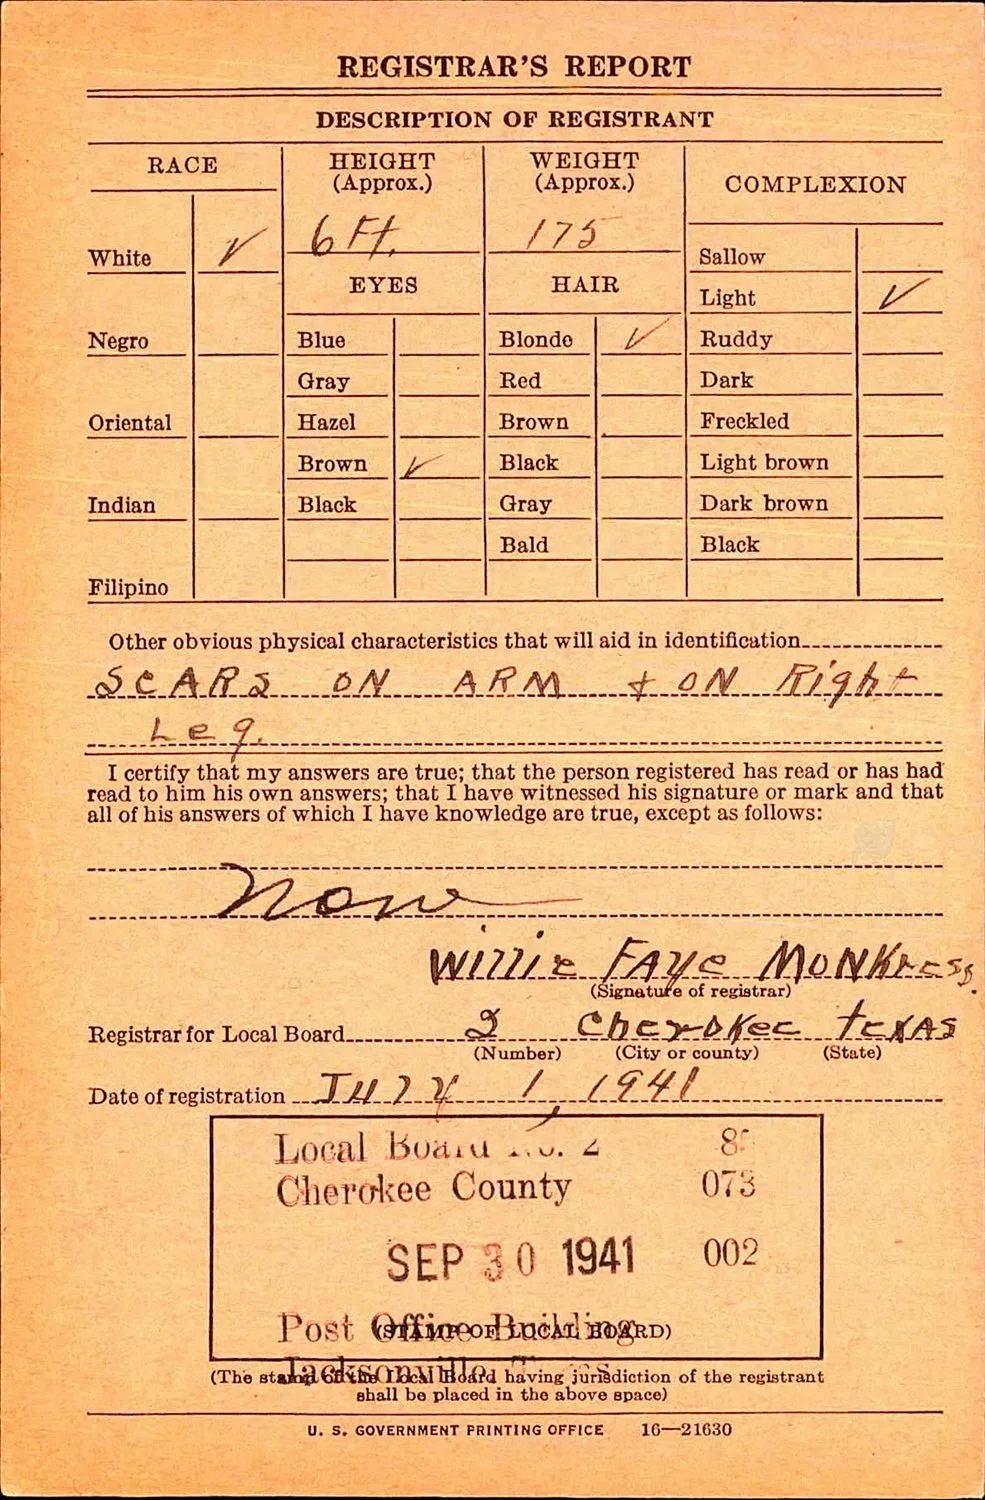 REGISTRAR'S REPORT
DESCRIPTION OF REGISTRANT
RACE
HEIGHT
(Approx.)
WEIGHT
(Approx.)
COMPLEXION
6 Ft.
175
White ✓
Sallow
EYES
HAIR
Light ✓
Negro
Blue
Blonde ✓
Ruddy
Gray
Red
Dark
Oriental
Hazel
Brown
Freckled
Brown ✓
Black
Light brown
Indian
Black
Gray
Dark brown
Bald
Black
Filipino
Other obvious physical characteristics that will aid in identification
SCARS ON ARM + ON Right
Leg.
I certify that my answers are true; that the person registered has read or has had
read to him his own answers; that I have witnessed his signature or mark and that
all of his answers of which I have knowledge are true, except as follows:
None
Willie Faye Monkress.
(Signature of registrar)
Registrar for Local Board 2 Cherokee Texas
(Number) (City or county) (State)
Date of registration July 1, 1941
Local Board No. 2
Cherokee County 073
SEP 30 1941 002
Post Office Building
(STAMP OF LOCAL BOARD)
Jacksonville, Texas
(The stamp of the Local Board having jurisdiction of the registrant
shall be placed in the above space)
U. S. GOVERNMENT PRINTING OFFICE 16—21630